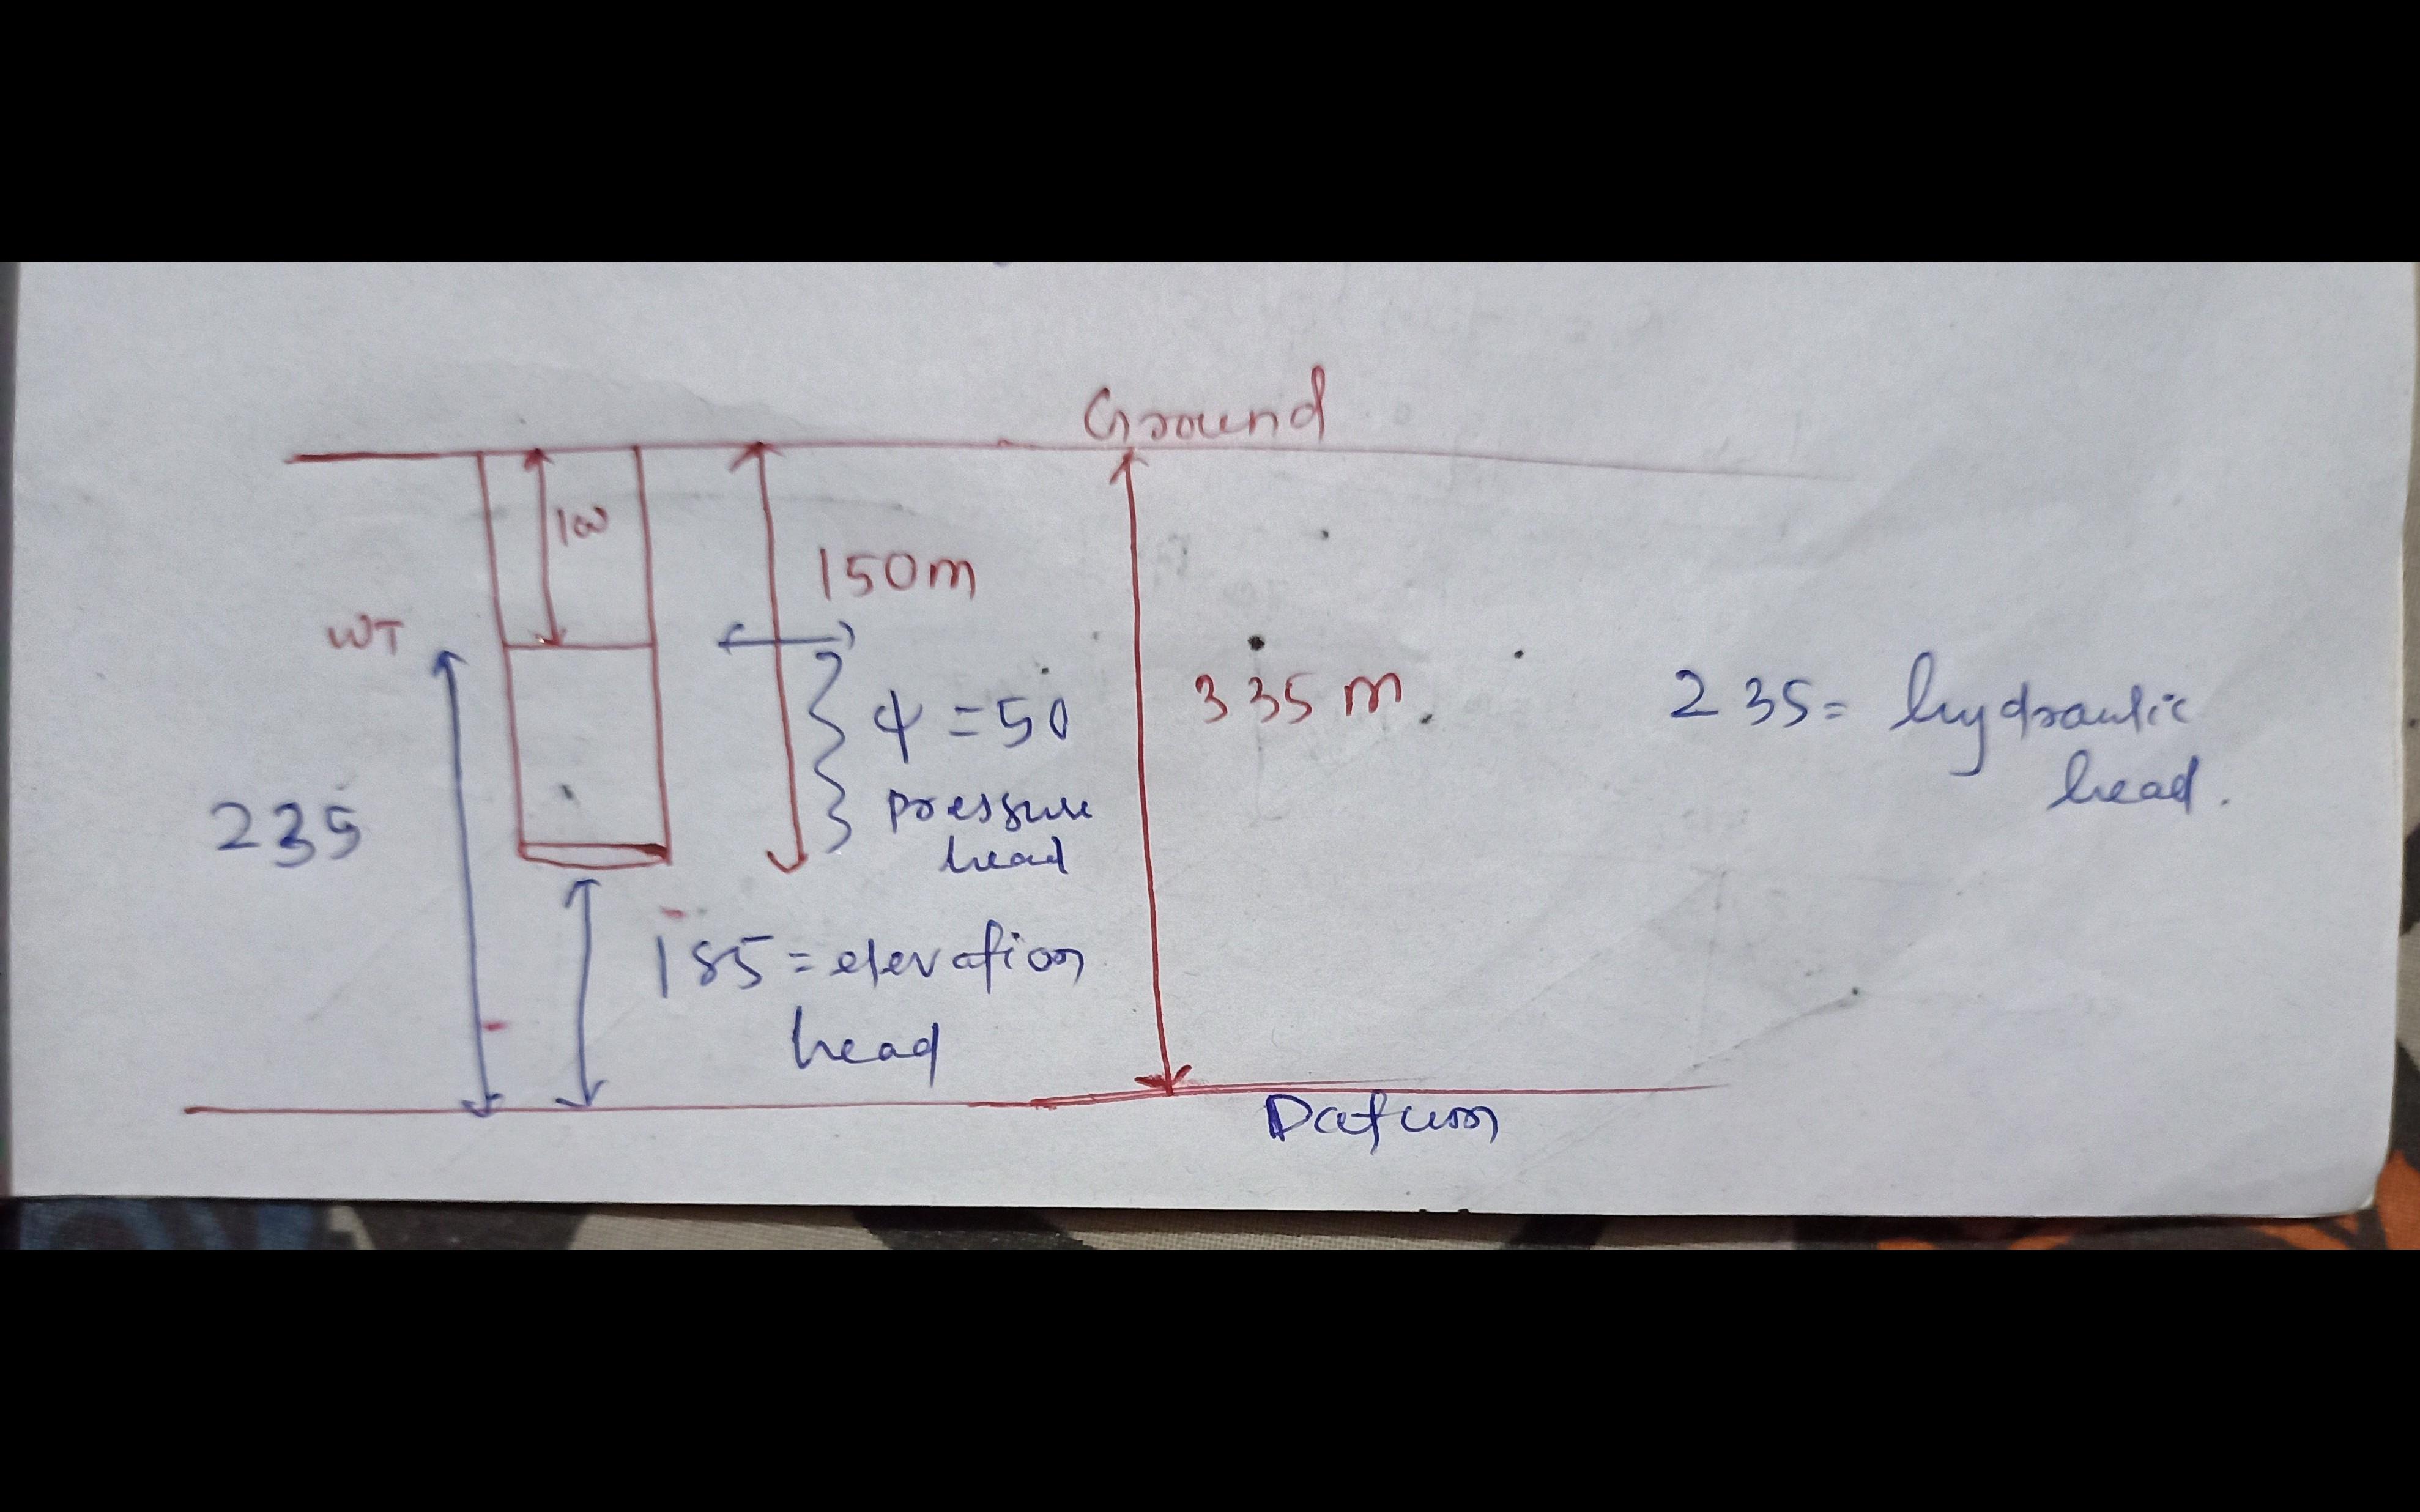 Ground
100
150m
WT
ψ = 50
pressure
head
335 m.
235 = hydraulic
head.
235
185 = elevation
head
Datum